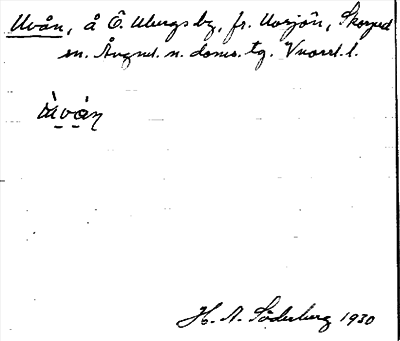 Uvån, å Ö. Ubergs by, fr. Uvsjön, Skorped
sn. Ångml. n. doms. tg. Vnorrl. l.
ùvȧn
H. A. Söderberg 1930